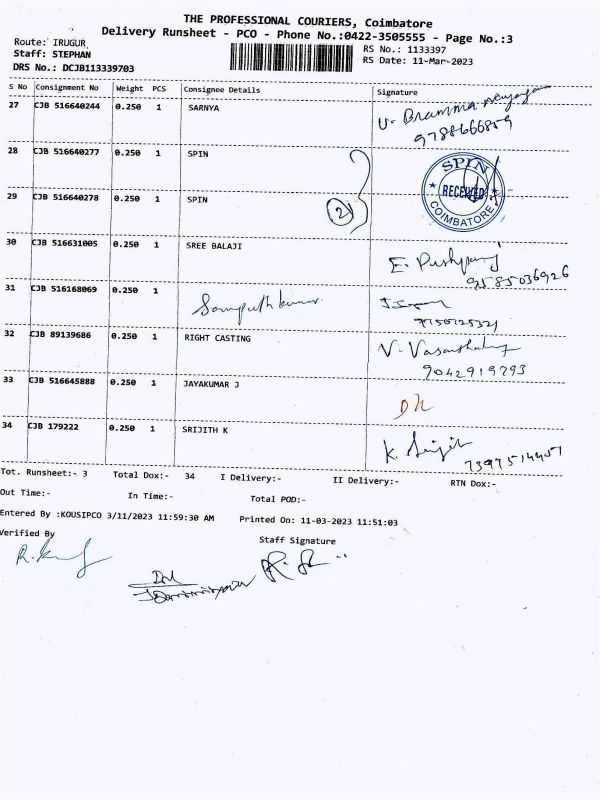 THE PROFESSIONAL COURIERS, Coimbatore
Delivery Runsheet - PCO - Phone No.:0422-3505555 - Page No.:3
Route: IRUGUR
Staff: STEPHAN
DRS No.: DCJB113339703
RS No.: 1133397
RS Date: 11-Mar-2023
S No Consignment No Weight PCS Consignee Details Signature
27 CJB 516640244 0.250 1 SARNYA
9788666859
28 CJB 516640277 0.250 1 SPIN
SPIN
RECEIVED
COIMBATORE
29 CJB 516640278 0.250 1 SPIN
2
30 CJB 516631005 0.250 1 SREE BALAJI
9585036926
31 CJB 516168069 0.250 1 Samputh kumar
32 CJB 89139686 0.250 1 RIGHT CASTING
9042919793
33 CJB 516645888 0.250 1 JAYAKUMAR J
34 CJB 179222 0.250 1 SRIJITH K
K. Srijith
Tot. Runsheet:- 3 Total Dox:- 34 I Delivery:- II Delivery:- RTN Dox:-
Out Time:- In Time:- Total POD:-
Entered By :KOUSIPCO 3/11/2023 11:59:30 AM Printed On: 11-03-2023 11:51:03
Verified By Staff Signature